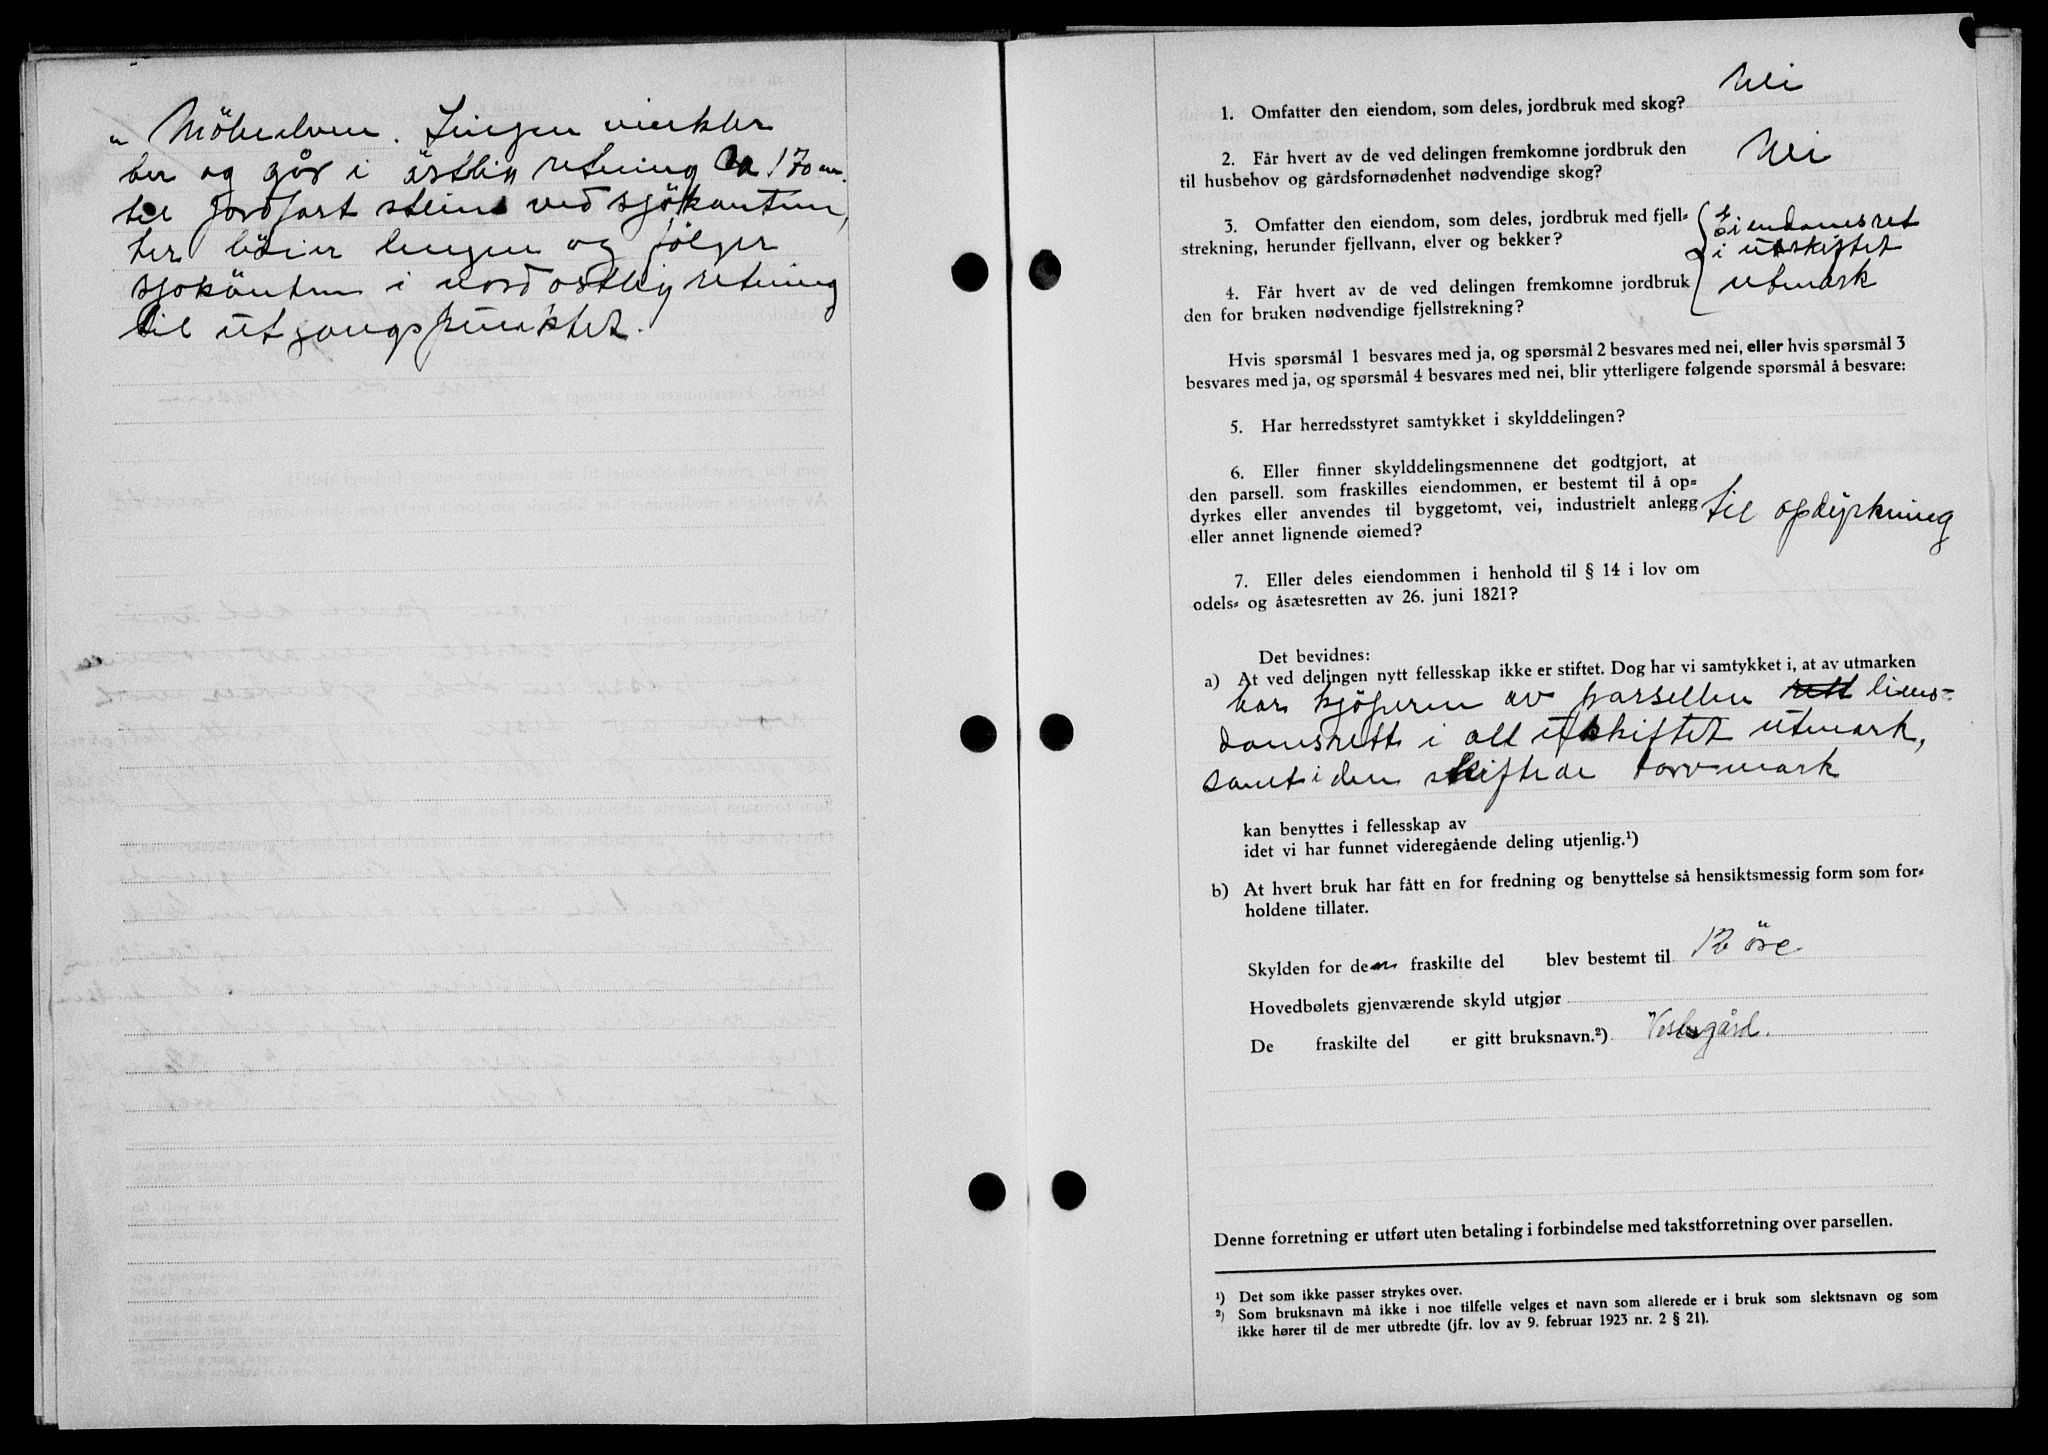 " Möbelven. Lingen vinkler
her og går i östlig retning ca 170 m.
til jordfart stein ved sjökanten,
her böier lingen og følger
sjøkanten i nordostlig retning
til utgangspunktet.
1. Omfatter den eiendom, som deles, jordbruk med skog? Nei
2. Får hvert av de ved delingen fremkomne jordbruk den
til husbehov og gårdsfornødenhet nødvendige skog? Nei
3. Omfatter den eiendom, som deles, jordbruk med fjell-
strekning, herunder fjellvann, elver og bekker?
4. Får hvert av de ved delingen fremkomne jordbruk
den for bruken nødvendige fjellstrekning?
Eiendomsret
i utskiftet
utmark
Hvis spørsmål 1 besvares med ja, og spørsmål 2 besvares med nei, eller hvis spørsmål 3
besvares med ja, og spørsmål 4 besvares med nei, blir ytterligere følgende spørsmål å besvare:
5. Har herredsstyret samtykket i skylddelingen?
6. Eller finner skylddelingsmennene det godtgjort, at
den parsell. som fraskilles eiendommen, er bestemt til å op-
dyrkes eller anvendes til byggetomt, vei, industrielt anlegg
eller annet lignende øiemed?
til opdyrkning
7. Eller deles eiendommen i henhold til § 14 i lov om
odels- og åsætesretten av 26. juni 1821?
Det bevidnes:
a) At ved delingen nytt fellesskap ikke er stiftet. Dog har vi samtykket i, at av utmarken
har kjöperen av parsellen rett eiens-
domsrett i all utskiftet utmark,
samt i den skiftede torvmark
kan benyttes i fellesskap av
idet vi har funnet videregående deling utjenlig.¹)
b) At hvert bruk har fått en for fredning og benyttelse så hensiktsmessig form som for-
holdene tillater.
Skylden for den fraskilte del blev bestemt til 12 öre
Hovedbølets gjenværende skyld utgjør
De fraskilte del er gitt bruksnavn.²) Vestgård.
Denne forretning er utført uten betaling i forbindelse med takstforretning over parsellen.
¹) Det som ikke passer strykes over.
²) Som bruksnavn må ikke i noe tilfelle velges et navn som allerede er i bruk som slektsnavn og som
ikke hører til de mer utbredte (jfr. lov av 9. februar 1923 nr. 2 § 21).